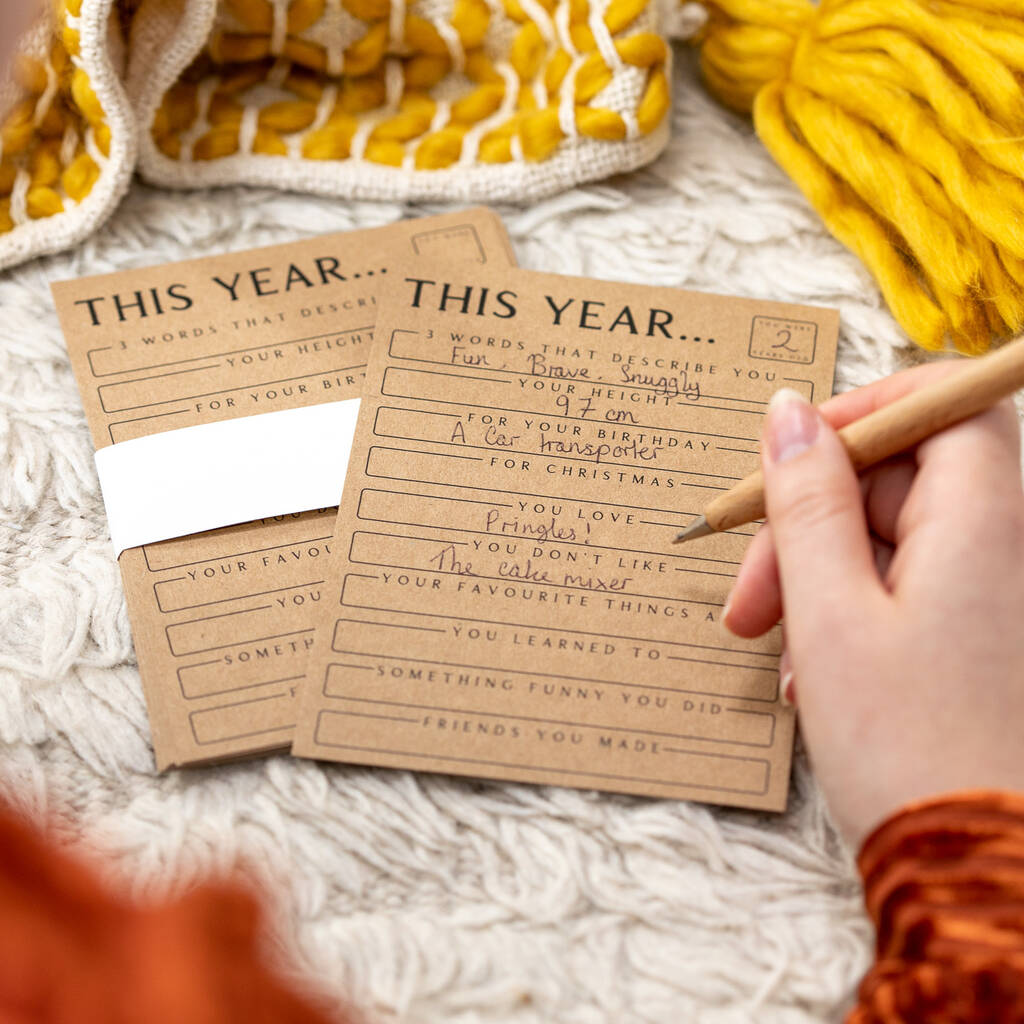 THIS YEAR...
3 WORDS THAT DESCRI
YOUR HEIGHT
FOR YOUR BIRT
YOUR FAVOU
YOU
SOMETH
F
THIS YEAR...
YOU WERE
2
YEARS OLD
3 WORDS THAT DESCRIBE YOU
Fun, Brave, Snuggly
YOUR HEIGHT
97 cm
FOR YOUR BIRTHDAY
A Car transporter
FOR CHRISTMAS
YOU LOVE
Pringles!
YOU DON'T LIKE
The cake mixer
YOUR FAVOURITE THINGS A
YOU LEARNED TO
SOMETHING FUNNY YOU DID
FRIENDS YOU MADE